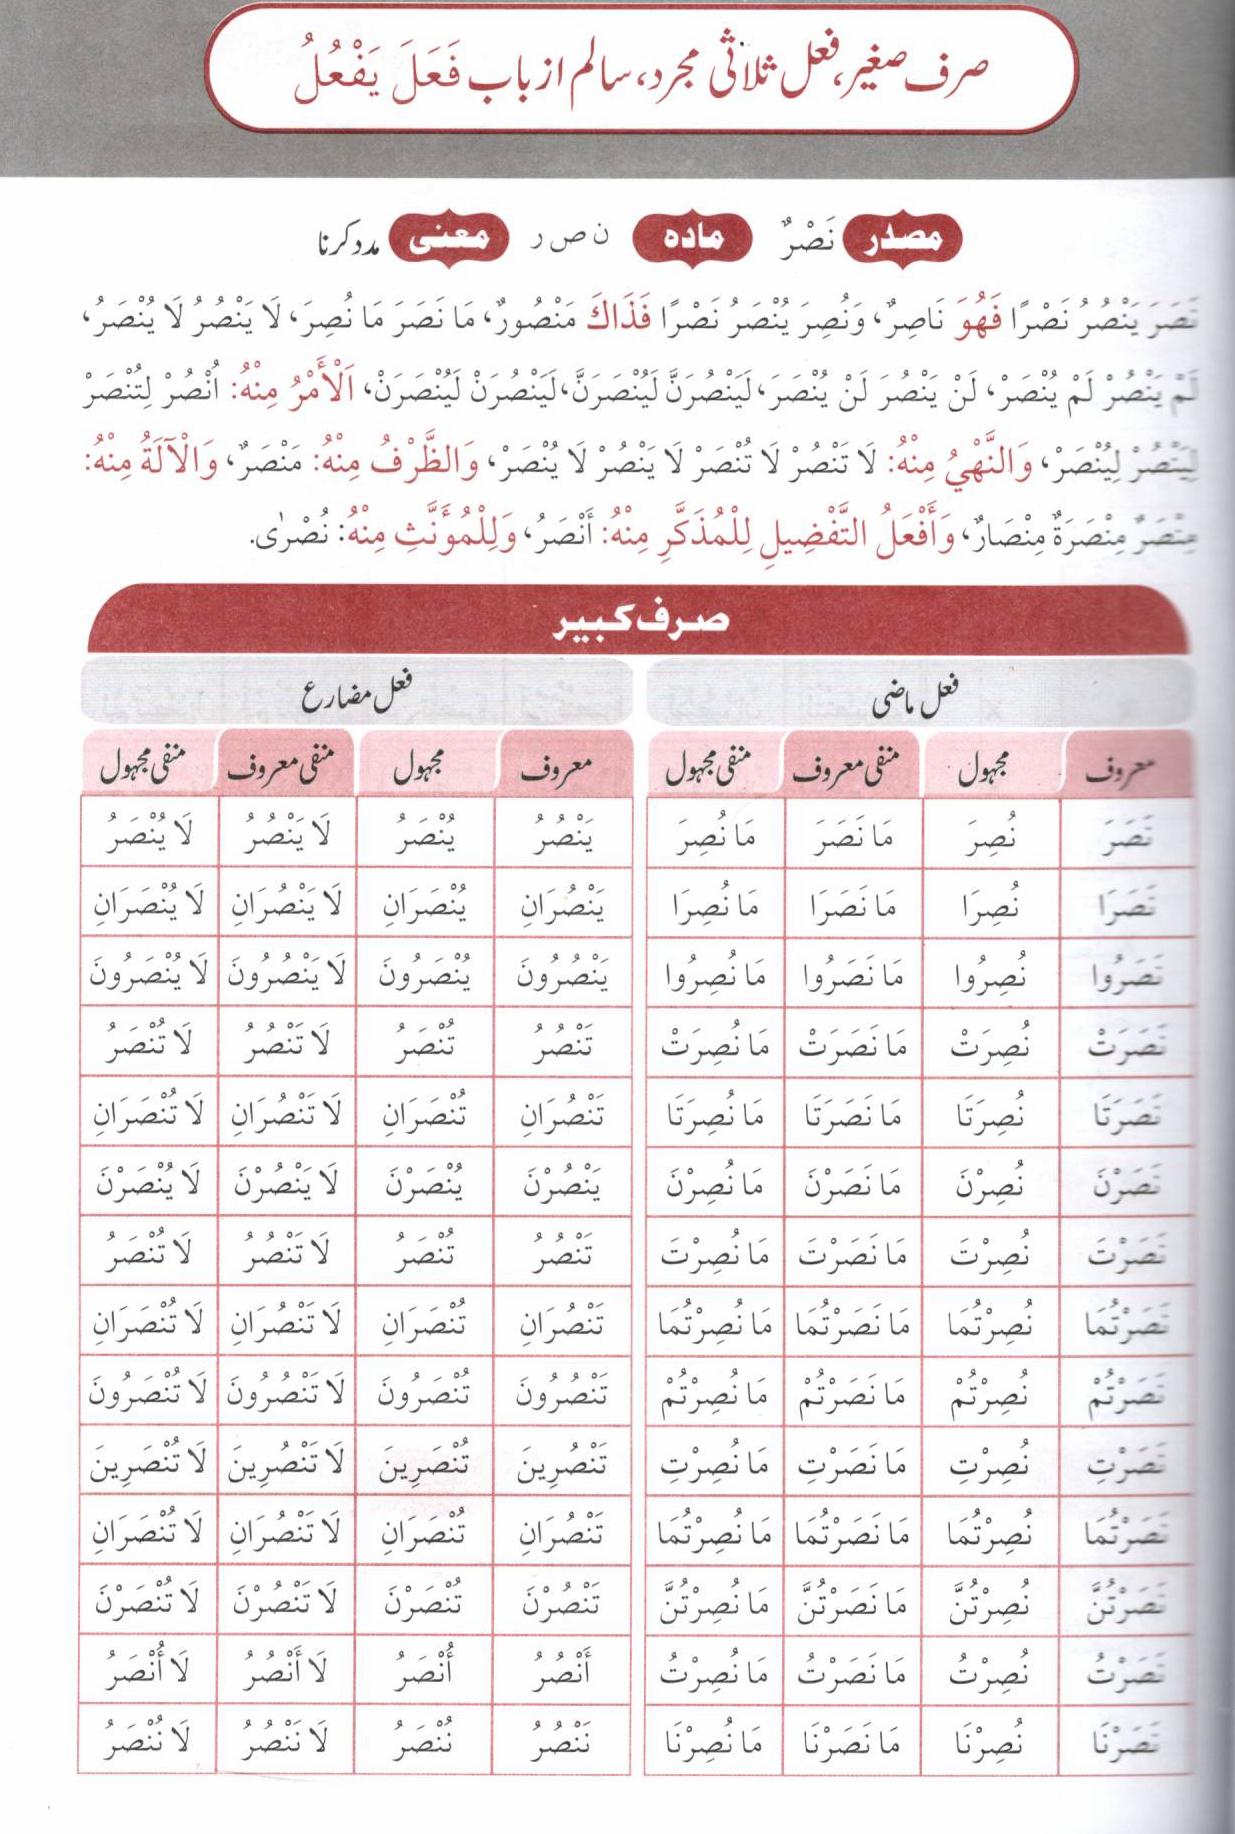 صرف صغیر، فعل ثلاثی مجرد، سالم از باب فَعَلَ یَفْعُلُ
مصدر نَصْرٌ ماده ن ص ر معنی مدد کرنا
نَصَرَ يَنْصُرُ نَصْرًا فَهُوَ نَاصِرٌ، وَنُصِرَ يُنْصَرُ نَصْرًا فَذَاكَ مَنْصُورٌ، مَا نَصَرَ مَا نُصِرَ، لَا يَنْصُرُ لَا يُنْصَرُ،
لَمْ يَنْصُرْ لَمْ يُنْصَرْ، لَنْ يَنْصُرَ لَنْ يُنْصَرَ، لَيَنْصُرَنَّ لَيُنْصَرَنَّ، لَيَنْصُرَنْ لَيُنْصَرَنْ، اَلْأَمْرُ مِنْهُ: اُنْصُرْ لِتُنْصَرْ
لِيَنْصُرْ لِيُنْصَرْ، وَالنَّهْيُ مِنْهُ: لَا تَنْصُرْ لَا تُنْصَرْ لَا يَنْصُرْ لَا يُنْصَرْ، وَالظَّرْفُ مِنْهُ: مَنْصَرٌ، وَالْآلَةُ مِنْهُ:
مِنْصَرٌ مِنْصَرَةٌ مِنْصَارٌ، وَأَفْعَلُ التَّفْضِيلِ لِلْمُذَكَّرِ مِنْهُ: أَنْصَرُ، وَلِلْمُؤَنَّثِ مِنْهُ: نُصْرٰى.
صرف کبیر
فعل ماضی فعل مضارع
معروف مجہول منفی معروف منفی مجہول معروف مجہول منفی معروف منفی مجہول
نَصَرَ نُصِرَ مَا نَصَرَ مَا نُصِرَ يَنْصُرُ يُنْصَرُ لَا يَنْصُرُ لَا يُنْصَرُ
نَصَرَا نُصِرَا مَا نَصَرَا مَا نُصِرَا يَنْصُرَانِ يُنْصَرَانِ لَا يَنْصُرَانِ لَا يُنْصَرَانِ
نَصَرُوا نُصِرُوا مَا نَصَرُوا مَا نُصِرُوا يَنْصُرُونَ يُنْصَرُونَ لَا يَنْصُرُونَ لَا يُنْصَرُونَ
نَصَرَتْ نُصِرَتْ مَا نَصَرَتْ مَا نُصِرَتْ تَنْصُرُ تُنْصَرُ لَا تَنْصُرُ لَا تُنْصَرُ
نَصَرَتَا نُصِرَتَا مَا نَصَرَتَا مَا نُصِرَتَا تَنْصُرَانِ تُنْصَرَانِ لَا تَنْصُرَانِ لَا تُنْصَرَانِ
نَصَرْنَ نُصِرْنَ مَا نَصَرْنَ مَا نُصِرْنَ يَنْصُرْنَ يُنْصَرْنَ لَا يَنْصُرْنَ لَا يُنْصَرْنَ
نَصَرْتَ نُصِرْتَ مَا نَصَرْتَ مَا نُصِرْتَ تَنْصُرُ تُنْصَرُ لَا تَنْصُرُ لَا تُنْصَرُ
نَصَرْتُمَا نُصِرْتُمَا مَا نَصَرْتُمَا مَا نُصِرْتُمَا تَنْصُرَانِ تُنْصَرَانِ لَا تَنْصُرَانِ لَا تُنْصَرَانِ
نَصَرْتُمْ نُصِرْتُمْ مَا نَصَرْتُمْ مَا نُصِرْتُمْ تَنْصُرُونَ تُنْصَرُونَ لَا تَنْصُرُونَ لَا تُنْصَرُونَ
نَصَرْتِ نُصِرْتِ مَا نَصَرْتِ مَا نُصِرْتِ تَنْصُرِينَ تُنْصَرِينَ لَا تَنْصُرِينَ لَا تُنْصَرِينَ
نَصَرْتُمَا نُصِرْتُمَا مَا نَصَرْتُمَا مَا نُصِرْتُمَا تَنْصُرَانِ تُنْصَرَانِ لَا تَنْصُرَانِ لَا تُنْصَرَانِ
نَصَرْتُنَّ نُصِرْتُنَّ مَا نَصَرْتُنَّ مَا نُصِرْتُنَّ تَنْصُرْنَ تُنْصَرْنَ لَا تَنْصُرْنَ لَا تُنْصَرْنَ
نَصَرْتُ نُصِرْتُ مَا نَصَرْتُ مَا نُصِرْتُ أَنْصُرُ أُنْصَرُ لَا أَنْصُرُ لَا أُنْصَرُ
نَصَرْنَا نُصِرْنَا مَا نَصَرْنَا مَا نُصِرْنَا نَنْصُرُ نُنْصَرُ لَا نَنْصُرُ لَا نُنْصَرُ